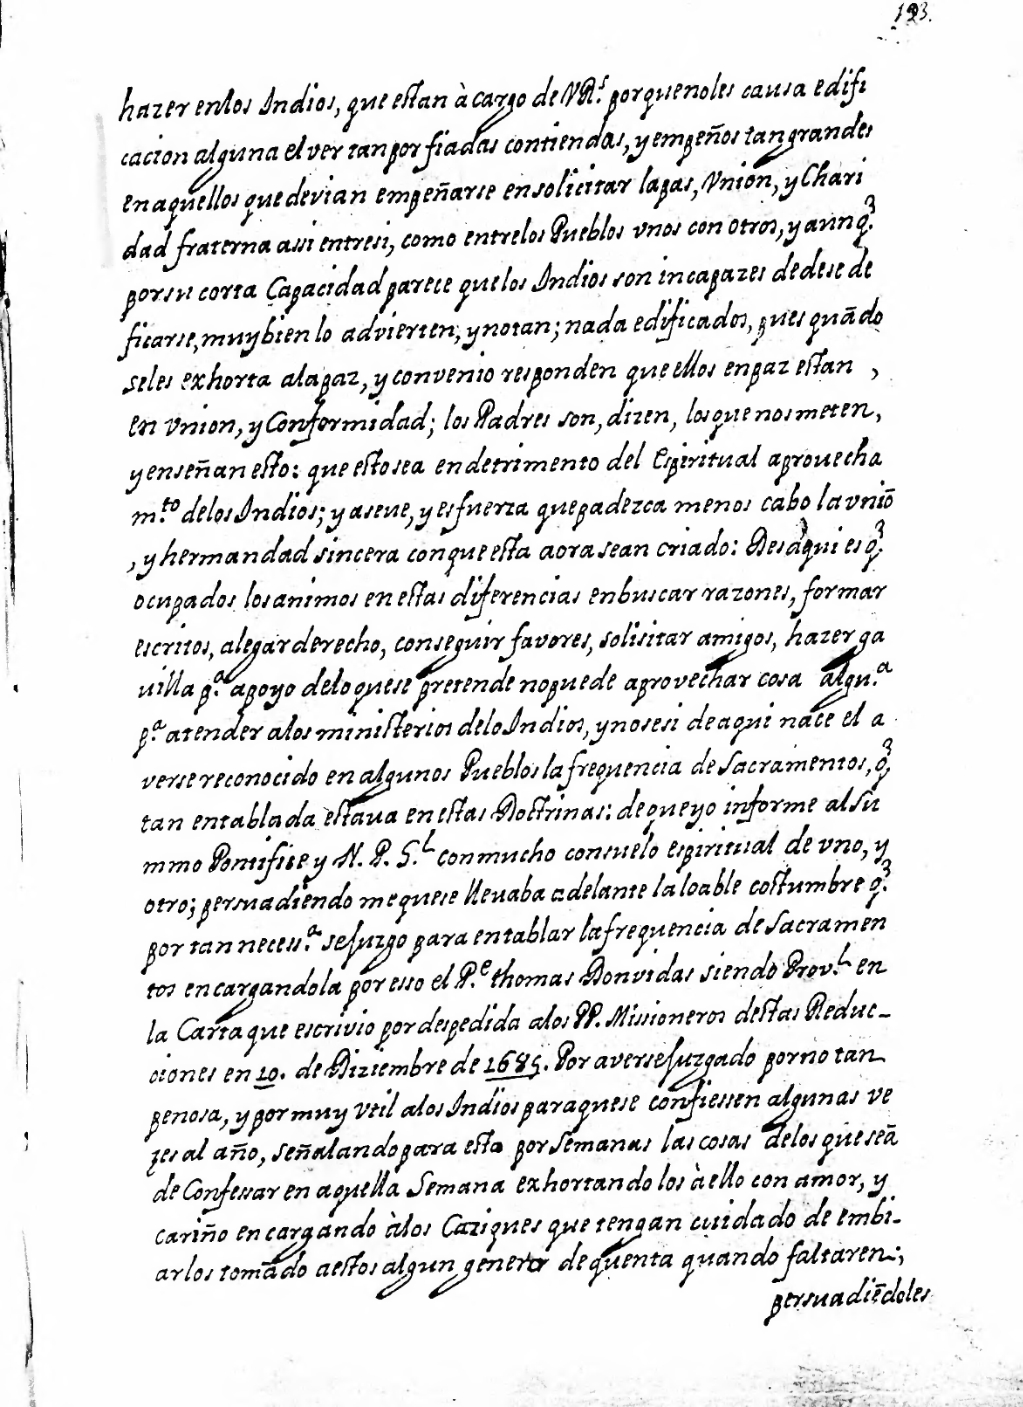 193.
hazer en los Indios, que estan à cargo de VRs. porque no les causa edifi
cacion alguna el ver tan porfiadas contiendas, y empeños tan grandes
en aquellos que devian empeñarse en solicitar la pas, Vnion, y Chari
dad fraterna assi entresi, como entre los Pueblos vnos con otros, y aunq̃.
por su corta Capacidad parece que los Indios son incapazes de dese de
ficarse, muy bien lo advierten, y notan; nada edificados, pues quãdo
seles exhorta ala paz, y convenio responden que ellos en paz estan ,
en Vnion, y Conformidad; los Padres son, dizen, los que nos meten,
y enseñan esto: que esto sea en detrimento del Espiritual aprouecha
m.to de los Indios; y aseue, y es fuerza que padezca menos cabo la vniõ
, y hermandad sincera con que esta aora sean criado: Des aqui es q̃.
ocupados los animos en estas diferencias en buscar razones, formar
escritos, alegar derecho, conseguir favores, solisitar amigos, hazer ga
uilla p.a apoyo delo que se pretende no puede aprovechar cosa algu.a
p.a atender alos ministerios delo Indios, y no se si de aqui nace el a
verse reconocido en algunos Pueblos la frequencia de Sacramentos, q̃,
tan entablada estaua en estas Doctrinas: de que yo informe al Su
mmo Pontifise y N. P. G.l con mucho consuelo espiritual de vno, y
otro; persuadiendo me que se lleuaba adelante la loable costumbre q̃.
por tan necess.a se juzgo para entablar la frequencia de Sacramen
tos encargandola por esso el P.e thomas Donvidas siendo Prov.l en
la Carta que escrivio por despedida alos PP. Missioneros destas Reduc-
ciones en 10. de Diziembre de 1685. Por averse juzgado por no tan
penosa, y por muy vtil alos Indios para que se confiessen algunas ve
zes al año, señalando para esto por Semanas las cosas delos que seã
de Confessar en aquella Semana exhortando los à ello con amor, y
cariño encargando àlos Caziques que tengan cuidado de embi-
arlos tomãdo a estos algun genero de quenta quando faltaren;
persuadiẽdoles